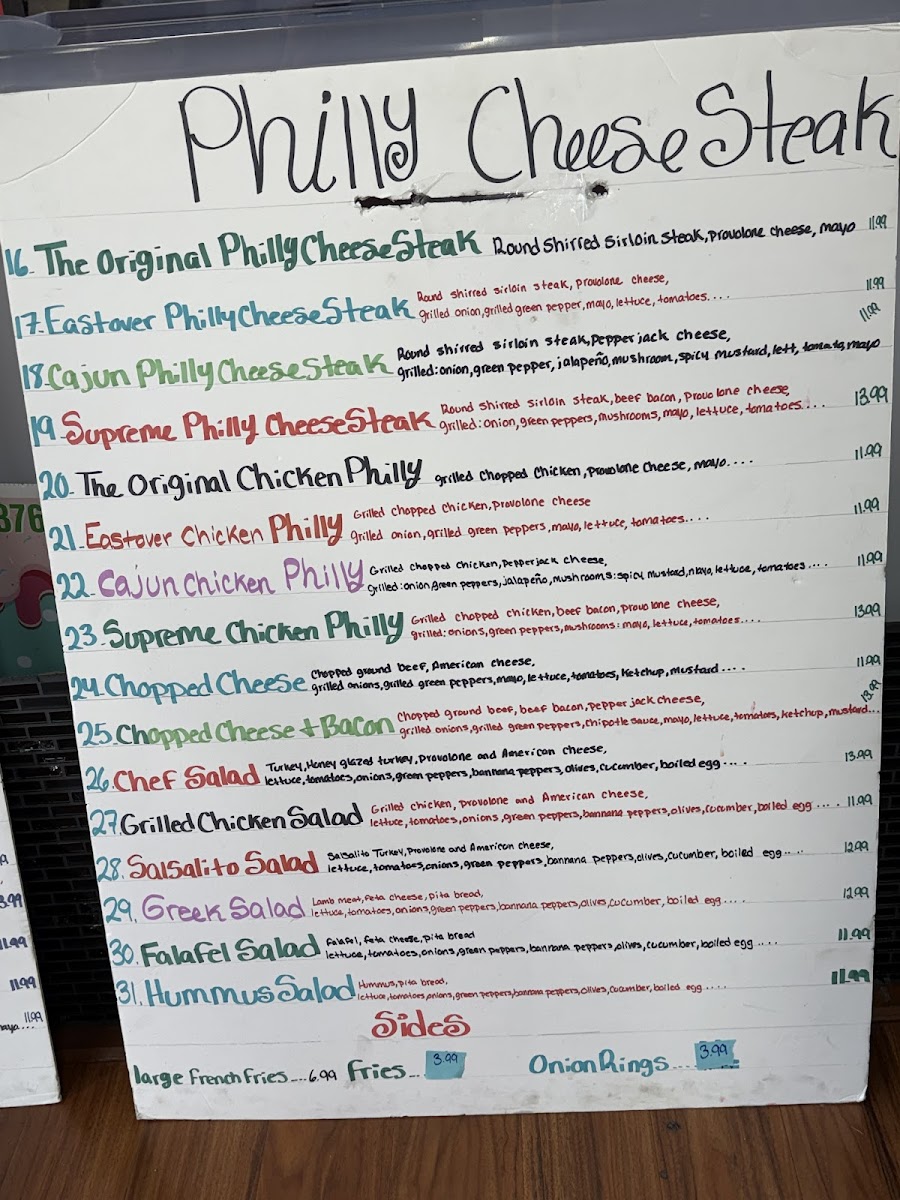 Philly CheeseSteak
16. The Original Philly CheeseSteak Round Shirred Sirloin Steak, provolone cheese, mayo 11.99
17. Eastover Philly CheeseSteak Round shirred sirloin steak, provolone cheese,
grilled onion, grilled green pepper, mayo, lettuce, tomatoes.... 11.99
18. Cajun Philly CheeseSteak Round shirred sirloin steak, Pepper jack cheese,
grilled: onion, green pepper, jalapeño, mushroom, spicy mustard, lett, tomato, mayo 11.99
19. Supreme Philly CheeseSteak Round shirred sirloin steak, beef bacon, provolone cheese,
grilled: onion, green peppers, mushrooms, mayo, lettuce, tomatoes.... 13.99
20. The Original Chicken Philly grilled chopped chicken, provolone cheese, mayo.... 11.99
21. Eastover Chicken Philly Grilled chopped chicken, provolone cheese
grilled onion, grilled green peppers, mayo, lettuce, tomatoes.... 11.99
22. Cajun Chicken Philly Grilled chopped chicken, Pepperjack cheese,
grilled: onion, green peppers, jalapeño, mushrooms: spicy mustard, mayo, lettuce, tomatoes.... 11.99
23. Supreme Chicken Philly Grilled chopped chicken, beef bacon, provolone cheese,
grilled: onions, green peppers, mushrooms: mayo, lettuce, tomatoes.... 13.99
24. Chopped Cheese Chopped ground beef, American cheese,
grilled onions, grilled green peppers, mayo, lettuce, tomatoes, ketchup, mustard.... 11.99
25. Chopped Cheese + Bacon Chopped ground beef, beef bacon, pepper jack cheese,
grilled onions, grilled green peppers, chipotle sauce, mayo, lettuce, tomatoes, ketchup, mustard...
26. Chef Salad Turkey, Honey glazed turkey, Provolone and American cheese,
lettuce, tomatoes, onions, green peppers, bannana peppers, olives, cucumber, boiled egg.... 13.99
27. Grilled Chicken Salad Grilled chicken, provolone and American cheese,
lettuce, tomatoes, onions, green peppers, bannana peppers, olives, cucumber, boiled egg.... 11.99
28. Salsalito Salad Salsalito Turkey, Provolone and American cheese,
lettuce, tomatoes, onions, green peppers, bannana peppers, olives, cucumber, boiled egg.... 12.99
29. Greek Salad Lamb meat, feta cheese, pita bread,
lettuce, tomatoes, onions, green peppers, bannana peppers, olives, cucumber, boiled egg.... 12.99
30. Falafel Salad Falafel, feta cheese, pita bread
lettuce, tomatoes, onions, green peppers, bannana peppers, olives, cucumber, boiled egg.... 11.99
31. Hummus Salad Hummus, pita bread,
lettuce, tomatoes, onions, green peppers, bannana peppers, olives, cucumber, boiled egg.... 11.99
Sides
large French Fries....6.99 Fries... 3.99 Onion Rings.... 3.99
376
3.99
11.99
11.99
11.99